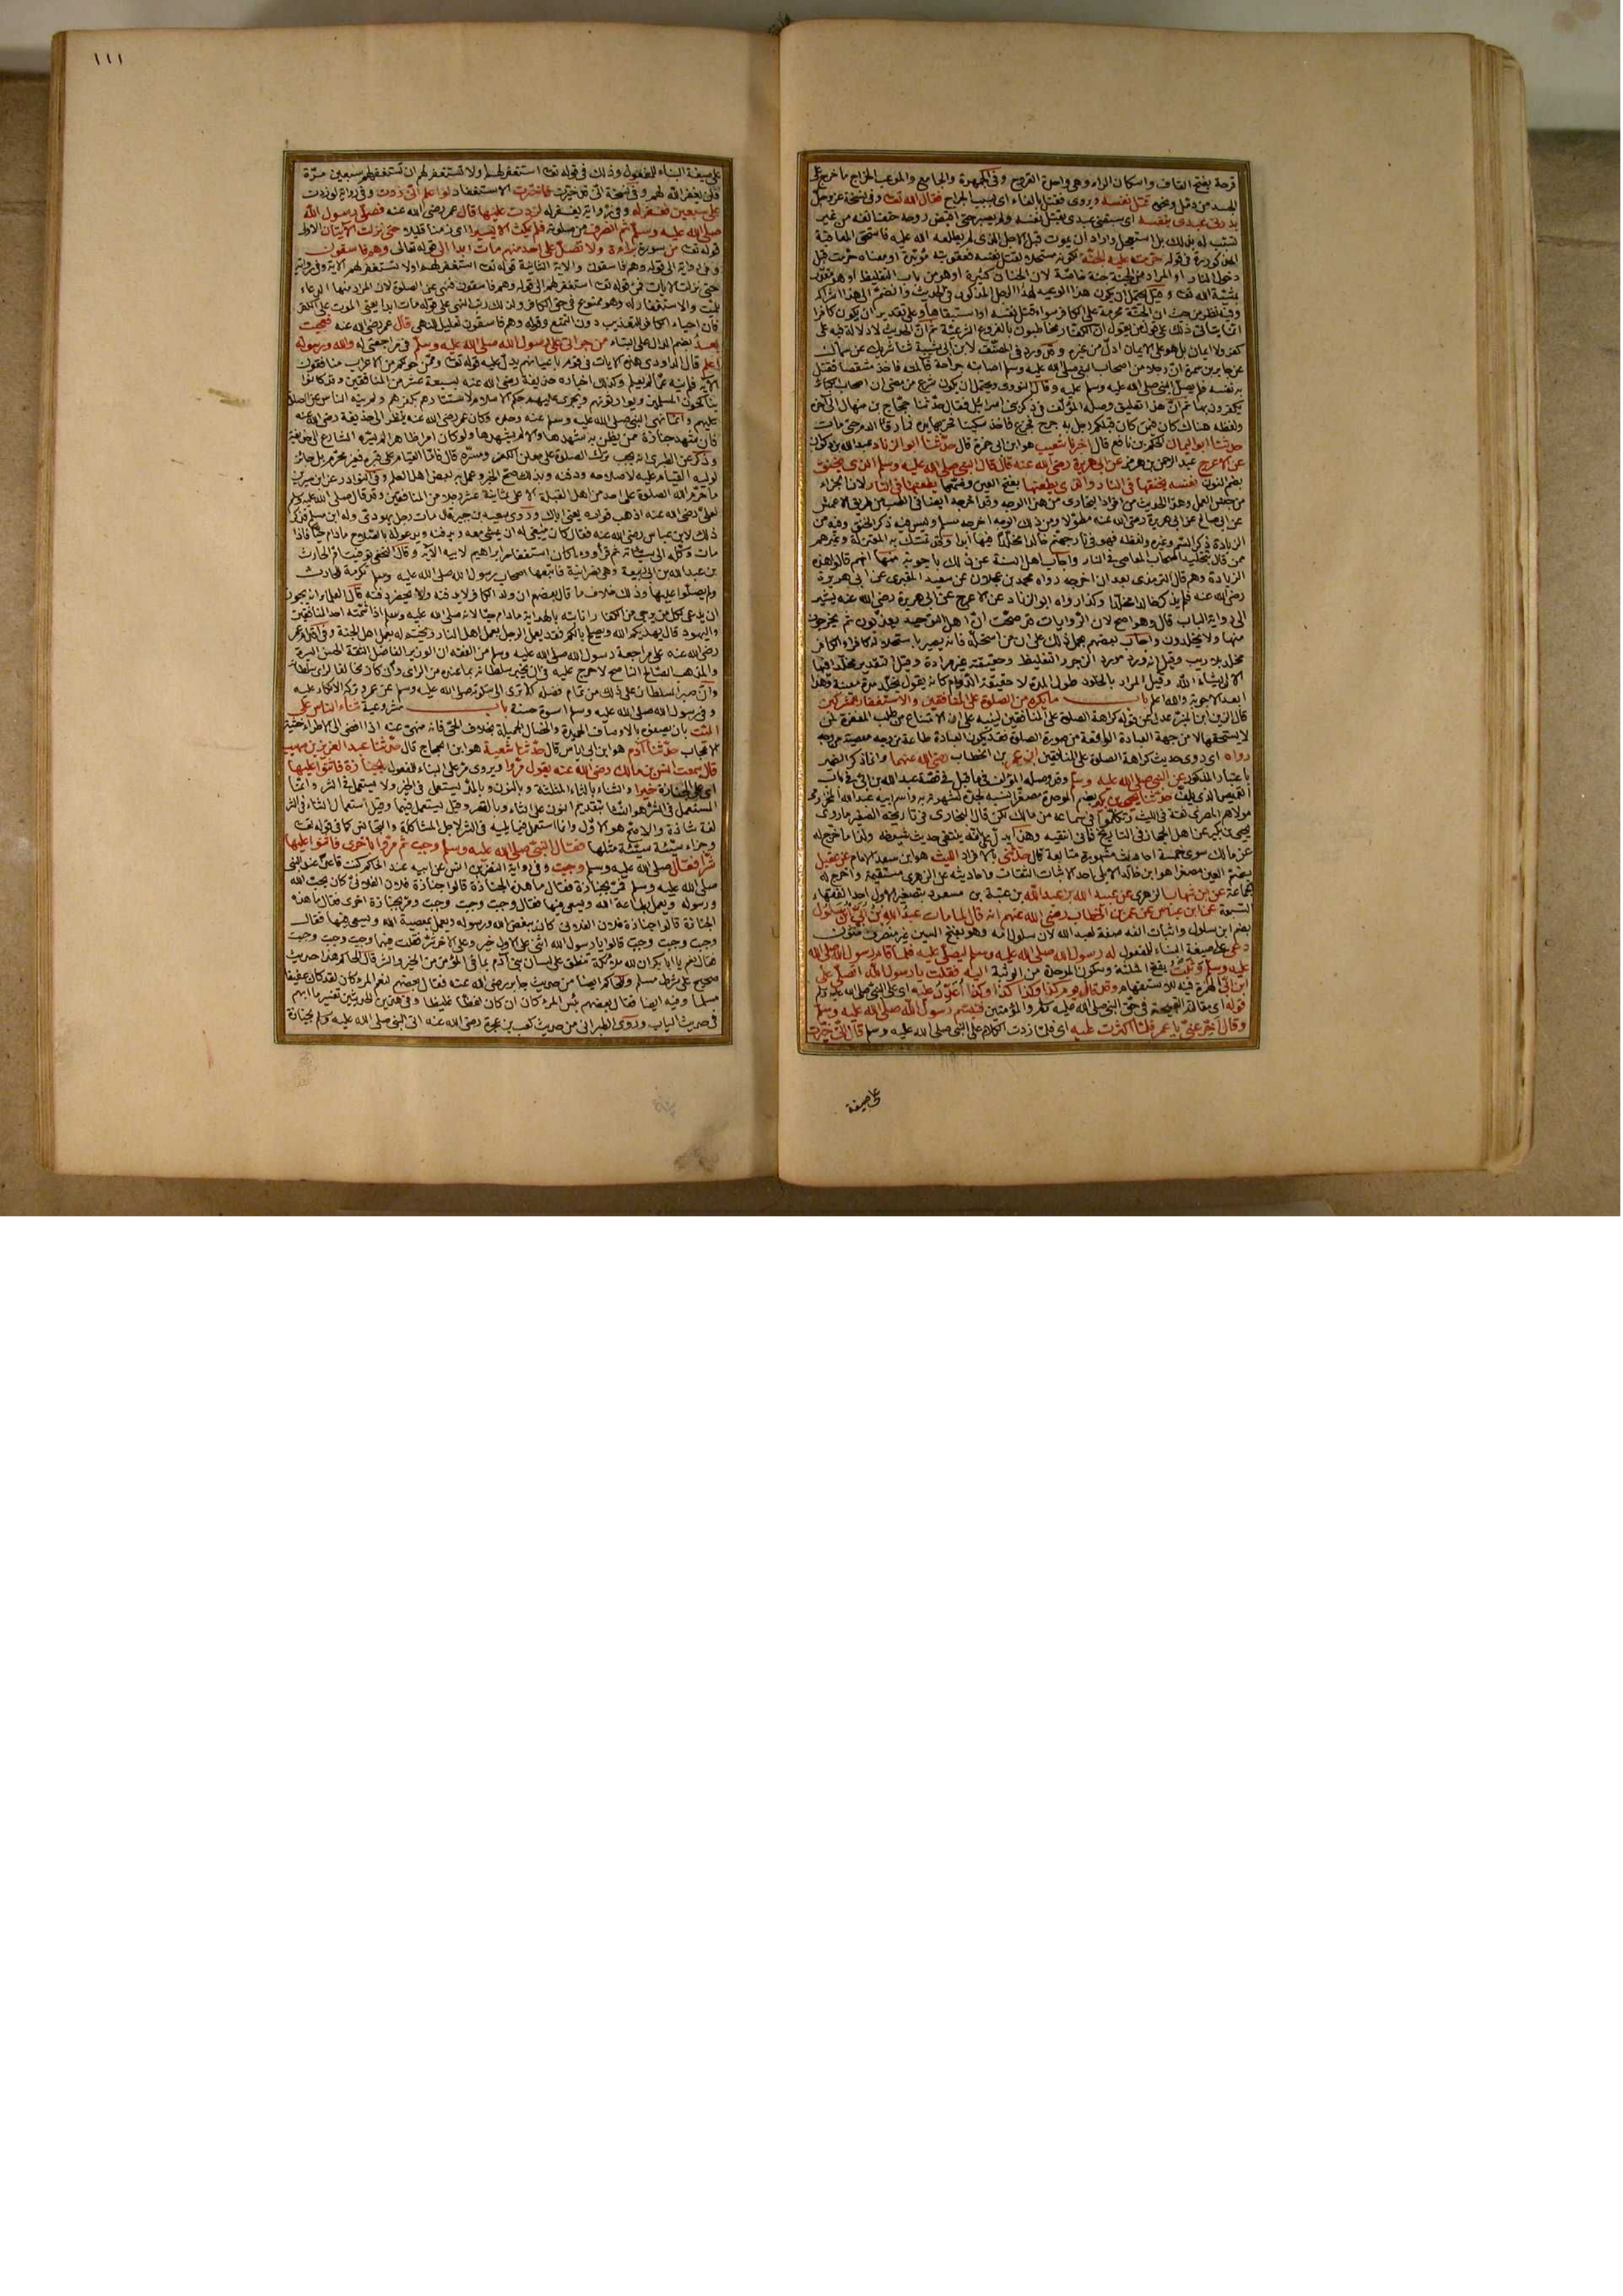 قرحة بفتح القاف واسكان الراء وهي واحدة القروح وفي الجمهرة والجامع والموعب الخراج ما خرج على
الجسد من دمل ونحوه قتل نفسه ويروى فقتل بالفاء اى بسبب الجراح فقال الله تعـ وفي نسخة عز وجل
بدرنى عبدى بنفسه اى سبقنى عبدى بقتل نفسه ولم يصبر حتى اقبض روحه حتفا لفه من غير
تسبب له بذلك بل استعجل واراد ان يموت قبل الاجل الذى لم يطلعه الله عليه فاستحق المعاقبة
المذكورة في قوله حرمت عليه الجنة لكونه مستحلا لقتل نفسه فعقوبته مؤبدة او معناه حرمت قبل
دخول النار او المراد من الجنة جنة خاصة لان الجنان كثيرة او هو من باب التغليظ او هو مقدر
بمشيئة الله تعـ وقيل يحتمل ان يكون هذا الوعيد لهذا الرجل المذكور في الحديث وانضم الى هذا الشرك
وفيه نظر من حيث ان الجنة محرمة على الكافر سواء قتل نفسه او استبقاها وعلى تقدير ان يكون كافرا
انما يتأتى ذلك على قول من يقول ان الكفار مخاطبون بالفروع الشرعية ثم ان الحديث لا دلالة فيه على
كفر ولا ايمان بل هو على الايمان ادل من غيره وقد ورد في المصنف لابن ابى شيبة ثنا شريك عن سماك
عن جابر بن سمرة ان رجلا من اصحاب النبي صلى الله عليه وسلم اصابته جراحة فآلمته فاخذ مشقصا فقتل
به نفسه فلم يصل النبي صلى الله عليه وسلم عليه وقال النووى ويحتمل ان يكون شرع من مضى ان اصحاب الكبائر
يكفرون بها ثم ان هذا تعليق وصله المؤلف في ذكر بنى اسرائيل فقال حدثنا محمد ثنا حجاج بن منهال الى آخره
ولفظه هناك كان فيمن كان قبلكم رجل به جرح فجزع فاخذ سكينا فحز بها يده فما رقأ الدم حتى مات
حدثنا ابو اليمان الحكم بن نافع قال اخبرنا شعيب هو ابن ابى حمزة قال حدثنا ابو الزناد عبد الله بن ذكوان
عن الاعرج عبد الرحمن بن هرمز عن ابى هريرة رضى الله عنه قال قال النبي صلى الله عليه وسلم الذى يخنق
بضم النون نفسه يخنقها في النار والذى يطعنها بفتح العين وضمها يطعنها في النار لان الجزاء
من جنس العمل وهذا الحديث من افراد البخارى من هذا الوجه وقد اخرجه ايضا في الطب من طريق الاعمش
عن ابى صالح عن ابى هريرة رضى الله عنه مطولا ومن ذلك الوجه اخرجه مسلم وليس فيه ذكر الخنق وفيه من
الزيادة ذكر السم وغيره ولفظه فهو في نار جهنم خالدا مخلدا فيها ابدا وقد تمسك به المعتزلة وغيرهم
ممن قال بتخليد اصحاب المعاصى في النار واجاب اهل السنة عن ذلك باجوبة منها انهم قالوا هذه
الزيادة وهم قال الترمذى بعد ان اخرجه رواه محمد بن عجلان عن سعيد المقبرى عن ابى هريرة
رضى الله عنه فلم يذكر خالدا مخلدا وكذا رواه ابو الزناد عن الاعرج عن ابى هريرة رضى الله عنه يشير
الى رواية الباب قال وهو اصح لان الروايات قد صحت ان اهل التوحيد يعذبون ثم يخرجون
منها ولا يخلدون واجاب بعضهم بحمل ذلك على ان من استحله فانه يصير باستحلاله كافرا والكافر
مخلد بلا ريب وقيل انه ورد مورد الزجر والتغليظ وحقيقته غير مرادة وقيل التقدير مخلدا فيها
الا ان يشاء الله وقيل المراد بالخلود طول المدة لا حقيقة الدوام كانه يقول يخلد مدة معينة وهذا
ابعد الاجوبة والله اعلم باب ما يكره من الصلوة على المنافقين والاستغفار للمشركين
قال الزين ابن المنير عدل عن قوله كراهة الصلوة على المنافقين لينبه على ان الامتناع من طلب المغفرة لمن
لا يستحقها لا من جهة العبادة الواقعة من صورة الصلوة فقد تكون العبادة طاعة من وجه معصية من وجه
رواه اى روى حديث كراهة الصلوة على المنافقين ابن عمر بن الخطاب رضى الله عنهما وانما ذكر الضمير
باعتبار المذكور عن النبي صلى الله عليه وسلم وقد وصله المؤلف فيما قبل في قصة عبد الله بن ابى في باب
القميص الذى يلف حدثنا يحيى بن بكير بضم الموحدة مصغرا نسبه لجده لشهرته به واسم ابيه عبد الله المخزومى
مولاهم المصرى ثقة في الليث وتكلموا في سماعه من مالك لكن قال البخارى في تاريخه الصغير ما روى
يحيى بن بكير عن اهل الحجاز في التاريخ فانى انتقيه وهذا يدل على انه ينتقى حديث شيوخه ولذا ما خرج له
عن مالك سوى خمسة احاديث مشهورة متابعة قال حدثنى بالافراد الليث هو ابن سعد الامام عن عقيل
بضم العين مصغرا هو ابن خالد الايلى احد الاثبات الثقات واحاديثه عن الزهرى مستقيمة واخرج له
الجماعة عن ابن شهاب الزهرى عن عبيد الله بن عبد الله بن عتبة بن مسعود بتصغير الاول احد الفقهاء
السبعة عن ابن عباس عن عمر بن الخطاب رضى الله عنهم انه قال لما مات عبد الله بن ابى ابن سلول
بضم ابن سلول واثبات الفه صفة لعبد الله لان سلول امه وهو بفتح السين غير منصرف
دعى على صيغة البناء للمفعول له رسول الله صلى الله عليه وسلم ليصلى عليه فلما قام رسول الله صلى الله
عليه وسلم وثبت بفتح المثلثة وسكون الموحدة من الوثبة اليه فقلت يا رسول الله اتصلى على
ابن ابى الهمزة فيه للاستفهام وقد قال يوم كذا وكذا كذا وكذا اعدد عليه اى على النبي صلى الله عليه وسلم
قوله اى مقالته القبيحة في حق النبي صلى الله عليه وسلم والمؤمنين فتبسم رسول الله صلى الله عليه وسلم
وقال اخر عنى يا عمر فلما اكثرت عليه اى فلما زدت الكلام على النبي صلى الله عليه وسلم قال انى خيرت
على صيغة
١١١
على صيغة البناء للمفعول وذلك في قوله تعـ استغفر لهم او لا تستغفر لهم ان تستغفر لهم سبعين مرة
فلن يغفر الله لهم وفي نسخة انى قد خيرت فاخترت الاستغفار لو اعلم انى زدت وفي رواية لو زدت
على سبعين فغفر له وفي رواية يغفر له لزدت عليها قال عمر رضى الله عنه فصلى رسول الله
صلى الله عليه وسلم ثم انصرف من صلوته فلم يمكث الا يسيرا اى زمنا قليلا حتى نزلت الآيتان الاولى
قوله تعـ من سورة براءة ولا تصل على احد منهم مات ابدا الى قوله تعالى وهم فاسقون
وفي رواية الى قوله وهم فاسقون والآية الثانية قوله تعـ استغفر لهم او لا تستغفر لهم الآية وفي رواية
حتى نزلت الآيات فى قوله تعـ استغفر لهم الى قوله وهم فاسقون فنهى عن الصلوة لان المراد منها الدعاء
للميت والاستغفار له وهو ممنوع في حق الكافر ولذلك رتب النهى على قوله مات ابدا يعنى الموت على الكفر
فان احياء الكافر للتعذيب دون التمتع وقوله وهم فاسقون تعليل للنهى قال عمر رضى الله عنه فعجبت
بعد بضم الدال على البناء من جرأتى على رسول الله صلى الله عليه وسلم في مراجعتى له والله ورسوله
اعلم قال الداودى هذه الآيات في قوم باعيانهم يدل عليه قوله تعـ وممن حولكم من الاعراب منافقون
الآية فلم ينه عما لم يعلم وكذلك اخباره حذيفة رضى الله عنه بسبعة عشر من المنافقين وقد كانوا
يناكحون المسلمين ويوارثونهم ويجرى عليهم حكم الاسلام لاستتارهم بكفرهم ولم ينه الناس عن الصلوة
عليهم وانما نهى النبي صلى الله عليه وسلم عنه وحده وكان عمر رضى الله عنه ينظر الى حذيفة رضى الله عنه
فان شهد جنازة ممن يظن به شهدها والا لم يشهدها ولو كان امرا ظاهرا لم يسره الشارع الى حذيفة
وذكر عن الطبرى انه يجب ترك الصلوة على معلن الكفر ومسره قال فاما القيام على قبره فغير محرم بل جائز
لوليه القيام عليه لاصلاحه ودفنه وبذلك صح الخبر وعمل به بعض اهل العلم وفي النوادر عن ابن سيرين
ما حرم الله الصلوة على احد من اهل القبلة الا على ثمانية عشر رجلا من المنافقين وقد قال صلى الله عليه وسلم
لعلى رضى الله عنه اذهب فواره يعنى اباك وروى سعيد بن جبير قال مات رجل يهودى وله ابن مسلم فذكر
ذلك لابن عباس رضى الله عنه فقال كان ينبغى له ان يمشى معه ويدفنه ويدعو له بالصلاح ما دام حيا فاذا
مات وكله الى شانه ثم قرأ وما كان استغفار ابراهيم لابيه الآية وقال النخعى توفيت ام الحارث
بن عبد الله بن ابى ربيعة وهى نصرانية فاتبعها اصحاب رسول الله صلى الله عليه وسلم تكرمة للحارث
ولم يصلوا عليها وذلك خلاف ما قال بعضهم ان ولد الكافر لا يدفنه ولا يحضر دفنه قال العلماء انه يجوز
ان يدعى لكل من يرجى من الكفار انابته بالهداية ما دام حيا لانه صلى الله عليه وسلم اذا شمته احد المنافقين
واليهود قال يهديكم الله ويصلح بالكم فقد يعمل الرجل بعمل اهل النار ويختم له بعمل اهل الجنة وفي اقدام عمر
رضى الله عنه على مراجعة رسول الله صلى الله عليه وسلم من الفقه ان الوزير الفاضل الثقة الحسن السيرة
والمذهب الصالح الناصح لا حرج عليه في ان يخبر سلطانه بما عنده من الرأى وان كان مخالفا لرأى سلطانه
وان صبر السلطان على ذلك من تمام فضله الا ترى الى سكوته صلى الله عليه وسلم عن عمر وتركه الانكار عليه
وفي رسول الله صلى الله عليه وسلم اسوة حسنة باب مشروعية ثناء الناس على
الميت بان يصفوه بالاوصاف الحميدة والخصال الجميلة بخلاف الحى فانه منهى عنه اذا افضى الى الاطراء خشية
الاعجاب حدثنا آدم هو ابن ابى اياس قال حدثنا شعبة هو ابن الحجاج قال حدثنا عبد العزيز بن صهيب
قال سمعت انس بن مالك رضى الله عنه يقول مروا ويروى مر على البناء للمفعول بجنازة فاثنوا عليها
اى على الجنازة خيرا والثناء بالثاء المثلثة وبالنون وبالمد يستعمل في الخير ولا يستعمل في الشر وانما
المستعمل في الشر هو النثا بتقديم النون على الثاء وبالقصر وقيل يستعمل فيهما وقيل استعمال الثناء في الشر
لغة شاذة والاصح هو الاول وانما استعمل فيما يليه في الشر لاجل المشاكلة والتجانس كما في قوله تعـ
وجزاء سيئة سيئة مثلها فقال النبي صلى الله عليه وسلم وجبت ثم مروا باخرى فاثنوا عليها
شرا فقال صلى الله عليه وسلم وجبت وفي رواية النضر بن انس عن ابيه عند الحاكم كنت قاعدا عند النبي
صلى الله عليه وسلم فمر بجنازة فقال ما هذه الجنازة قالوا جنازة فلان الفلانى كان يحب الله
ورسوله ويعمل بطاعة الله ويسعى فيها فقال وجبت وجبت وجبت ومر بجنازة اخرى فقال ما هذه
الجنازة قالوا جنازة فلان الفلانى كان يبغض الله ورسوله ويعمل بمعصية الله ويسعى فيها فقال
وجبت وجبت وجبت قالوا يا رسول الله اثنى على الاول خير وعلى الآخر شر فقلت فيها وجبت وجبت وجبت
فقال نعم يا ابا بكر ان لله ملائكة تنطق على لسان بنى آدم بما في المؤمن من الخير والشر قال الحاكم هذا حديث
صحيح على شرط مسلم وللحاكم ايضا من حديث جابر رضى الله عنه فقال بعضهم لنعم المرء كان لقد كان عفيفا
مسلما وفيه ايضا فقال بعضهم بئس المرء كان ان كان لفظا غليظا وفي هذين الحديثين تفسير ما ابهم
في حديث الباب وروى الطبرانى من حديث كعب بن عجرة رضى الله عنه اتى النبي صلى الله عليه وسلم بجنازة